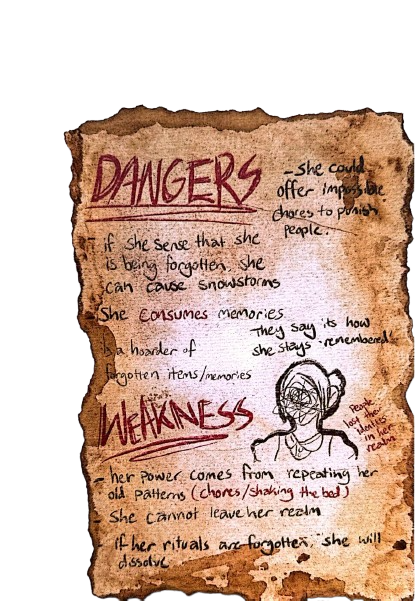 DANGERS
- she could
offer impossible
chores to punish
people.
- if she sense that she
is being forgotten, she
can cause snowstorms
- She consumes memories
They say its how
she stays "remembered"
- is a hoarder of
forgotten items/memories
WEAKNESS
People
lost their
in her
realm
- her power comes from repeating her
old patterns (chores/shaking the bed)
- She cannot leave her realm
- if her rituals are forgotten, she will
dissolve